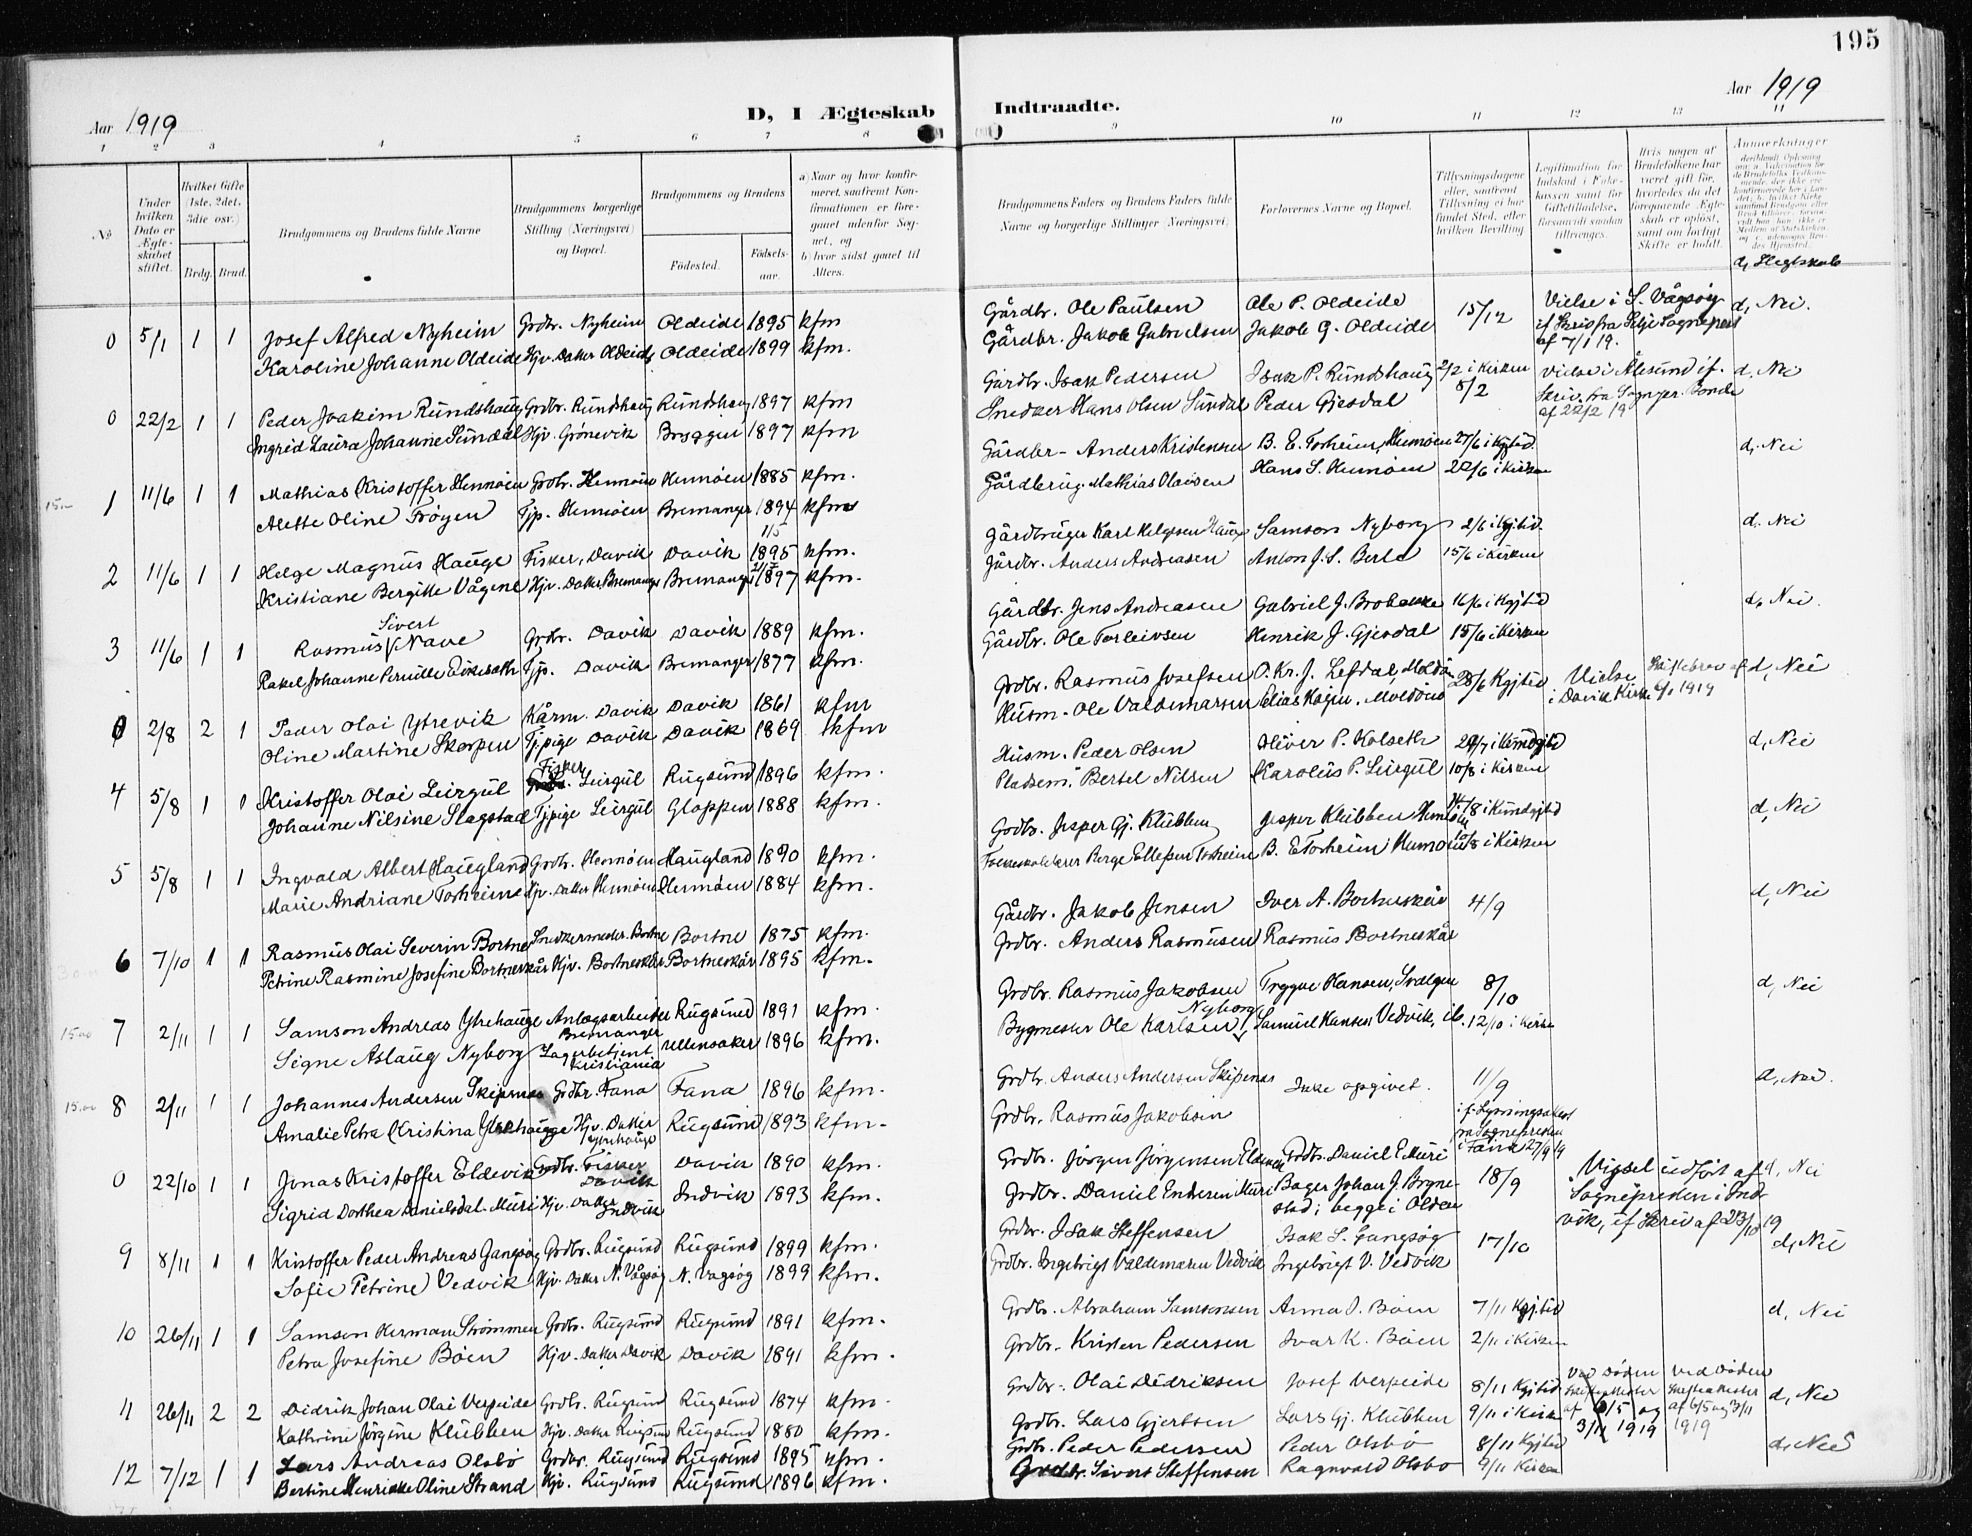 195
Aar 1919
D, I Ægteskab
Indtraadte.
Aar 1919
1 2 3 4 5 6 7 8 9 10 11 12 13
No
Under hvilken Dato er Ægteskabet stiftet.
Hvilket Gifte (1ste, 2det, 3die osv.)
Brdg. Brud.
Brudgommens og Brudens fulde Navne
Brudgommens borgerlige Stilling (Næringsvei) og Bopæl.
Brudgommens og Brudens
Fødested. Fødselsaar.
a) Naar og hvor konfirmeret, saafremt Konfirmationen er foregaaet udenfor Sognet, og
b) hvor sidst gaaet til Alters.
Brudgommens Faders og Brudens Faders fulde Navne og borgerlige Stillinger (Næringsvei)
Forlovernes Navne og Bopæl.
Tillysningsdagene eller, saafremt Tillysning ei har fundet Sted, efter hvilken Bevilling
Legitimation for Indskud i Enkekassen samt for Giftetilladelse, forsaavidt saadan tiltrænges.
Hvis nogen af Brudefolkene har været gift før, hvorledes da det foregaaende Ægteskab er opløst, samt om lovligt Skifte er holdt.
Anmerkninger
d, Slegtskab
0 5/1 1 1 Josef Alfred Nyheim Grdbr. Nyheim Oldeide 1895 kfm Gårdbr. Ole Paulsen Ole P. Oldeide 15/12 Vielse i S. Vågsøy d, Nei.
Karoline Johanne Oldeide Hjv. Datter Oldeide Oldeide 1899 kfm. Gårdbr. Jakob Gabrielsen Jakob G. Oldeide if Skriv fra Selje Sogneprest
af 7/1 19.
0 22/2 1 1 Peder Joakim Rundshaug Grdbr. Rundshaug Rundshaug 1897 kfm Gårdbr. Isak Pedersen Isak P. Rundshaug 2/2 i Kirken Vielse i Ålesund if. d, Nei
Ingrid Laura Johanne Sundal Hjv. Grønevik Bryggen 1897 kfm Snedker Hans Olsen Sundal Peder Gjesdal 8/2 Skriv. fra Sognepr. Bonde
af 22/2 19
15.- 1 11/6 1 1 Mathias Kristoffer Hennøen Grdbr. Hennøen Hennøen 1885 kfm. Gårdbr- Anders Kristensen B. E. Torheim, Hennøen 27/6 i Kgjtid d, Nei
Alette Oline Frøyen Tjp. Hennøen Bremanger 1894 kfm Gårdbrug. Mathias Olaisen Hans S. Hennøen 22/6 i Kirken
2 11/6 1 1 Helge Magnus Hauge Fisker, Davik Davik 1895 kfm. Gårdbruger Karl Helgesen Hauge Samson Nyborg 2/6 i Kgjtid. d. Nei
Kristiane Bergitte Vågene Hjv. Datter Bremanger Bremanger 1897 kfm. Gårdbr. Anders Andreasen Anton J. S. Berle 15/6 i Kirken
3 11/6 1 1 Rasmus Sivert Nave Grdbr. Davik Davik 1889 kfm. Gårdbr. Jens Andreasen Gabriel J. Brobakke 16/6 i Kgjtid d, Nei.
Rakel Johanne Pernille Eikeseth Tjp. Davik Bremanger 1877 kfm. Gårdbr. Ole Torleivsen Henrik J. Gjesdal 15/6 i Kirken
0 2/8 2 1 Peder Olai Ytrevik Kårm. Davik Davik 1861 kfm Grdbr. Rasmus Josefsen O. Kr. J. Lefdal, Moldøn 28/6 Kgjtid Vielse i Davik Kirke Skiftebrev af 6/1 1919 d, Nei
Oline Martine Skorpen Tj.pige Davik Davik 1869 kfm Husm. Ole Valdemarsen Elias Hagen, Moldøen
4 5/8 1 1 Kristoffer Olai Leirgul Fisker Leirgul Rugsund 1896 kfm. Husm. Peder Olsen Oliver P. Kolseth 29/7 i Kundgjtid d, Nei
Johanne Nilsine Slagstad Tj.pige Leirgul Gloppen 1888 kfm. Pladsem. Bertel Nilsen Karolus P. Leirgul 10/8 i Kirken
5 5/8 1 1 Ingvald Albert Haugland Grdbr. Hennøen Haugland 1890 kfm. Grdbr. Jesper Gj. Klubben Jesper Klubben Hennøen 4/8 i Kundgjtid d, Nei
Marie Andriane Torheim Hjv. datter Hennøen Hennøen 1884 kfm. Folkeskolelærer Børge Ellefsen Torheim B. E Torheim Hennøen 10/8 i Kirken
6 7/10 1 1 Rasmus Olai Severin Bortne Snedkermester. Bortne Bortne 1875 kfm. Gårdbr. Jakob Jensen Iver A. Bortneskår 4/9 d, Nei
Petrine Rasmine Josefine Bortneskår Hjv. Bortneskår Bortneskår 1895 kfm. Grdbr. Anders Rasmussen Rasmus Bortneskår
15.00 7 2/11 1 1 Samson Andreas Ytrehauge Anlægsarbeider Bremanger Rugsund 1891 kfm. Grdbr. Rasmus Jakobsen Trygve Hansen, Svelgen 8/10 d, Nei
Signe Aslaug Nyborg Lagerbetjent Kristiania Ullensaker 1896 kfm. Bygmester Ole Karlsen Nyborg Samuel Hansen Vedvik, ib. 12/10 i Kirke
15.00 8 2/11 1 1 Johannes Andersen Skipenes Grdbr. Fana Fana 1896 kfm. Grdbr. Anders Andersen Skipenes Ikke opgivet. 11/9 d, Nei.
Amalie Petra Kristina Ytrehauge Hjv. Datter Ytrehauge Rugsund 1893 kfm. Grdbr. Rasmus Jakobsen if. Lysningsattest fra Sognepresten i Fana 27/9 19
0 22/10 1 1 Jonas Kristoffer Eldevik Grdbr. Fisker Davik Davik 1890 kfm. Grdbr. Jørgen Jørgensen Eldevik Grdbr. Daniel E Muri 18/9 Vigsel udført af d, Nei
Sigrid Dorthea Danielsdal. Muri Hjv. Datter Indvik Indvik 1893 kfm. Grdbr. Daniel Endresen Muri Bager Johan J. Brynestad; begge i Olden Sognepresten i Indvik, if Skriv af 23/10 19
9 8/11 1 1 Kristoffer Peder Andreas Gangsøy Grdbr. Rugsund Rugsund 1899 kfm. Grdbr. Isak Steffensen Isak S. Gangsøy 17/10 d, Nei
Sofie Petrine Vedvik Hjv. Datter N. Vågsøy N. Vagsøy 1899 kfm. Grdbr. Ingebrigt Valdemaren Vedvik Ingebrigt V. Vedvik
10 26/11 1 1 Samson Herman Strømmen Grdbr. Rugsund Rugsund 1891 kfm. Grdbr. Abraham Samsonsen Anna I. Bøen 7/11 Kgj.tid d, Nei
Petra Josefine Bøen Hjv. Datter Davik Davik 1891 kfm. Grdbr. Kristen Pedersen Ivar K. Bøen 2/11 i Kirken
11 26/11 2 2 Didrik Johan Olai Verpeide Grdbr. Rugsund Rugsund 1874 kfm. Grdbr. Olai Didriksen Josef Verpeide 8/11 Kgjtid Ved Døden Skifteattester af 6/5 og 3/11 1919 ved Døden Skifteattester af 6/5 og 3/11 1919 d, Nei
Kathrine Jørgine Klubben Hjv. Datter Rugsund Rugsund 1880 kfm. Grdbr. Lars Gjertsen Lars Gj. Klubben 9/11 i Kirke
12 7/12 1 1 Lars Andreas Olsbø Grdbr. Rugsund Rugsund 1895 kfm. Grdbr. Peder Pedersen Peder Olsbø 8/11 Kgjtid d, Nei
Bertine Henrikke Oline Strand Hjv. Rugsund Rugsund 1896 kfm. Grdbr. Sivert Steffensen Ragnvald Olsbø 9/11 Kirken